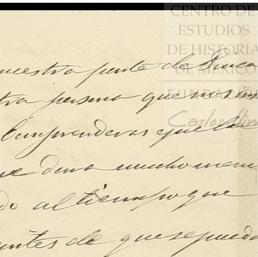 CENTRO DE
ESTUDIOS
DE HISTORIA
DE MÉXICO
Carlos Slim
nuestra parte de
tra persona que nos
Comprenderas que
dura mucho men
do al tiempo que
antes de que se pueda